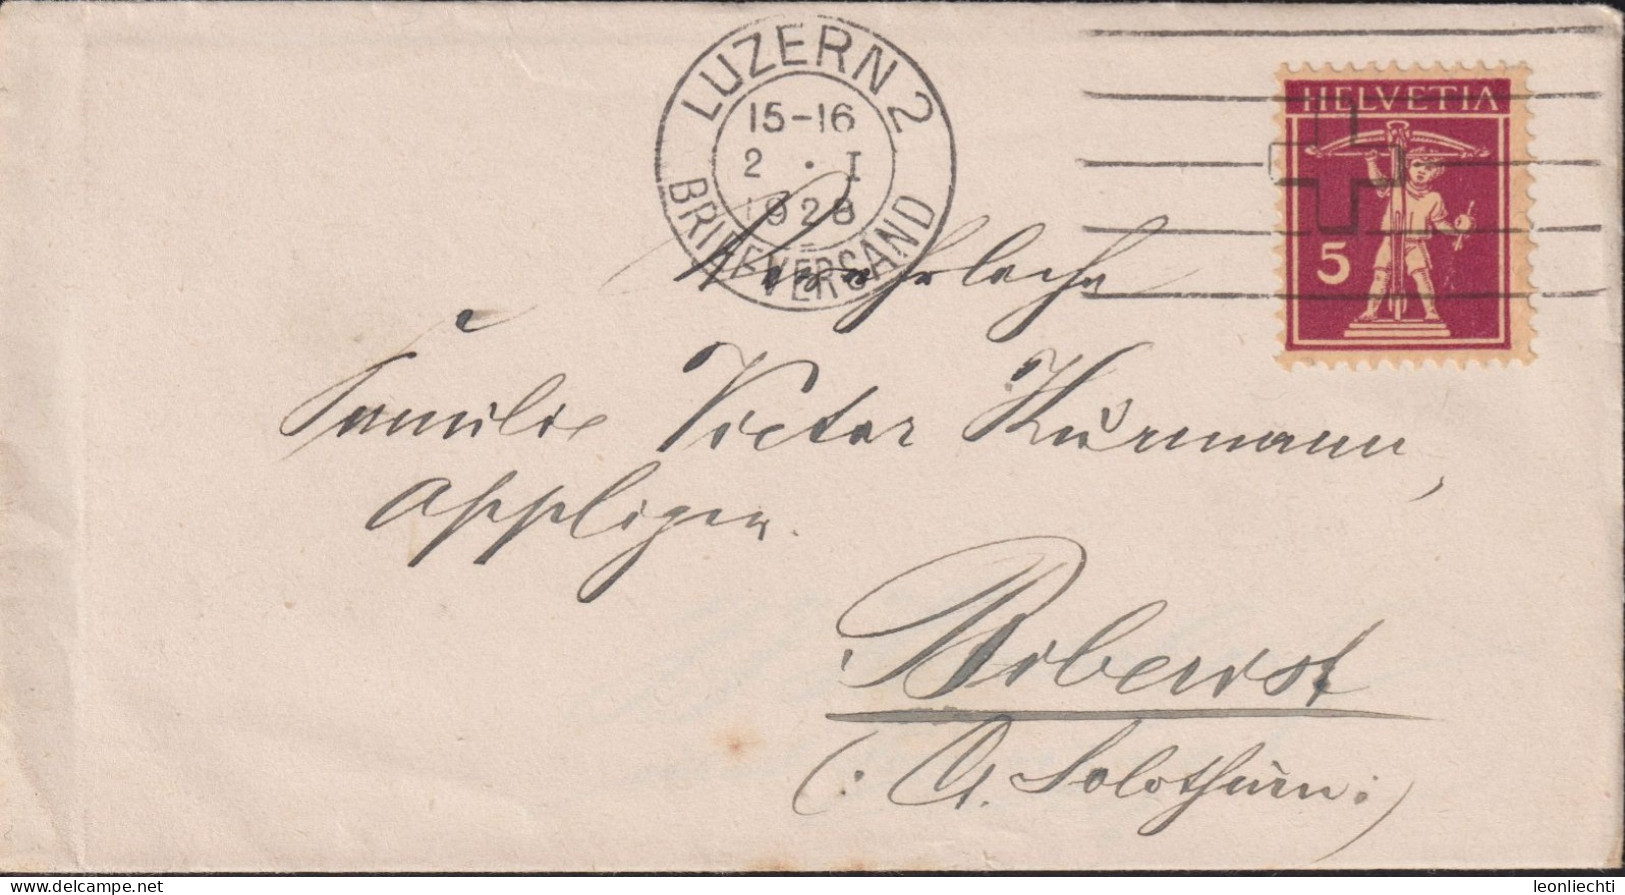 LUZERN 2
15-16
2 . I
1928
BRIEFVERSAND
HELVETIA
5
Familie Victor Kurmann,
Appligen.
Biberist
(: Ct. Solothurn :)
leonliechti
www.delcampe.net